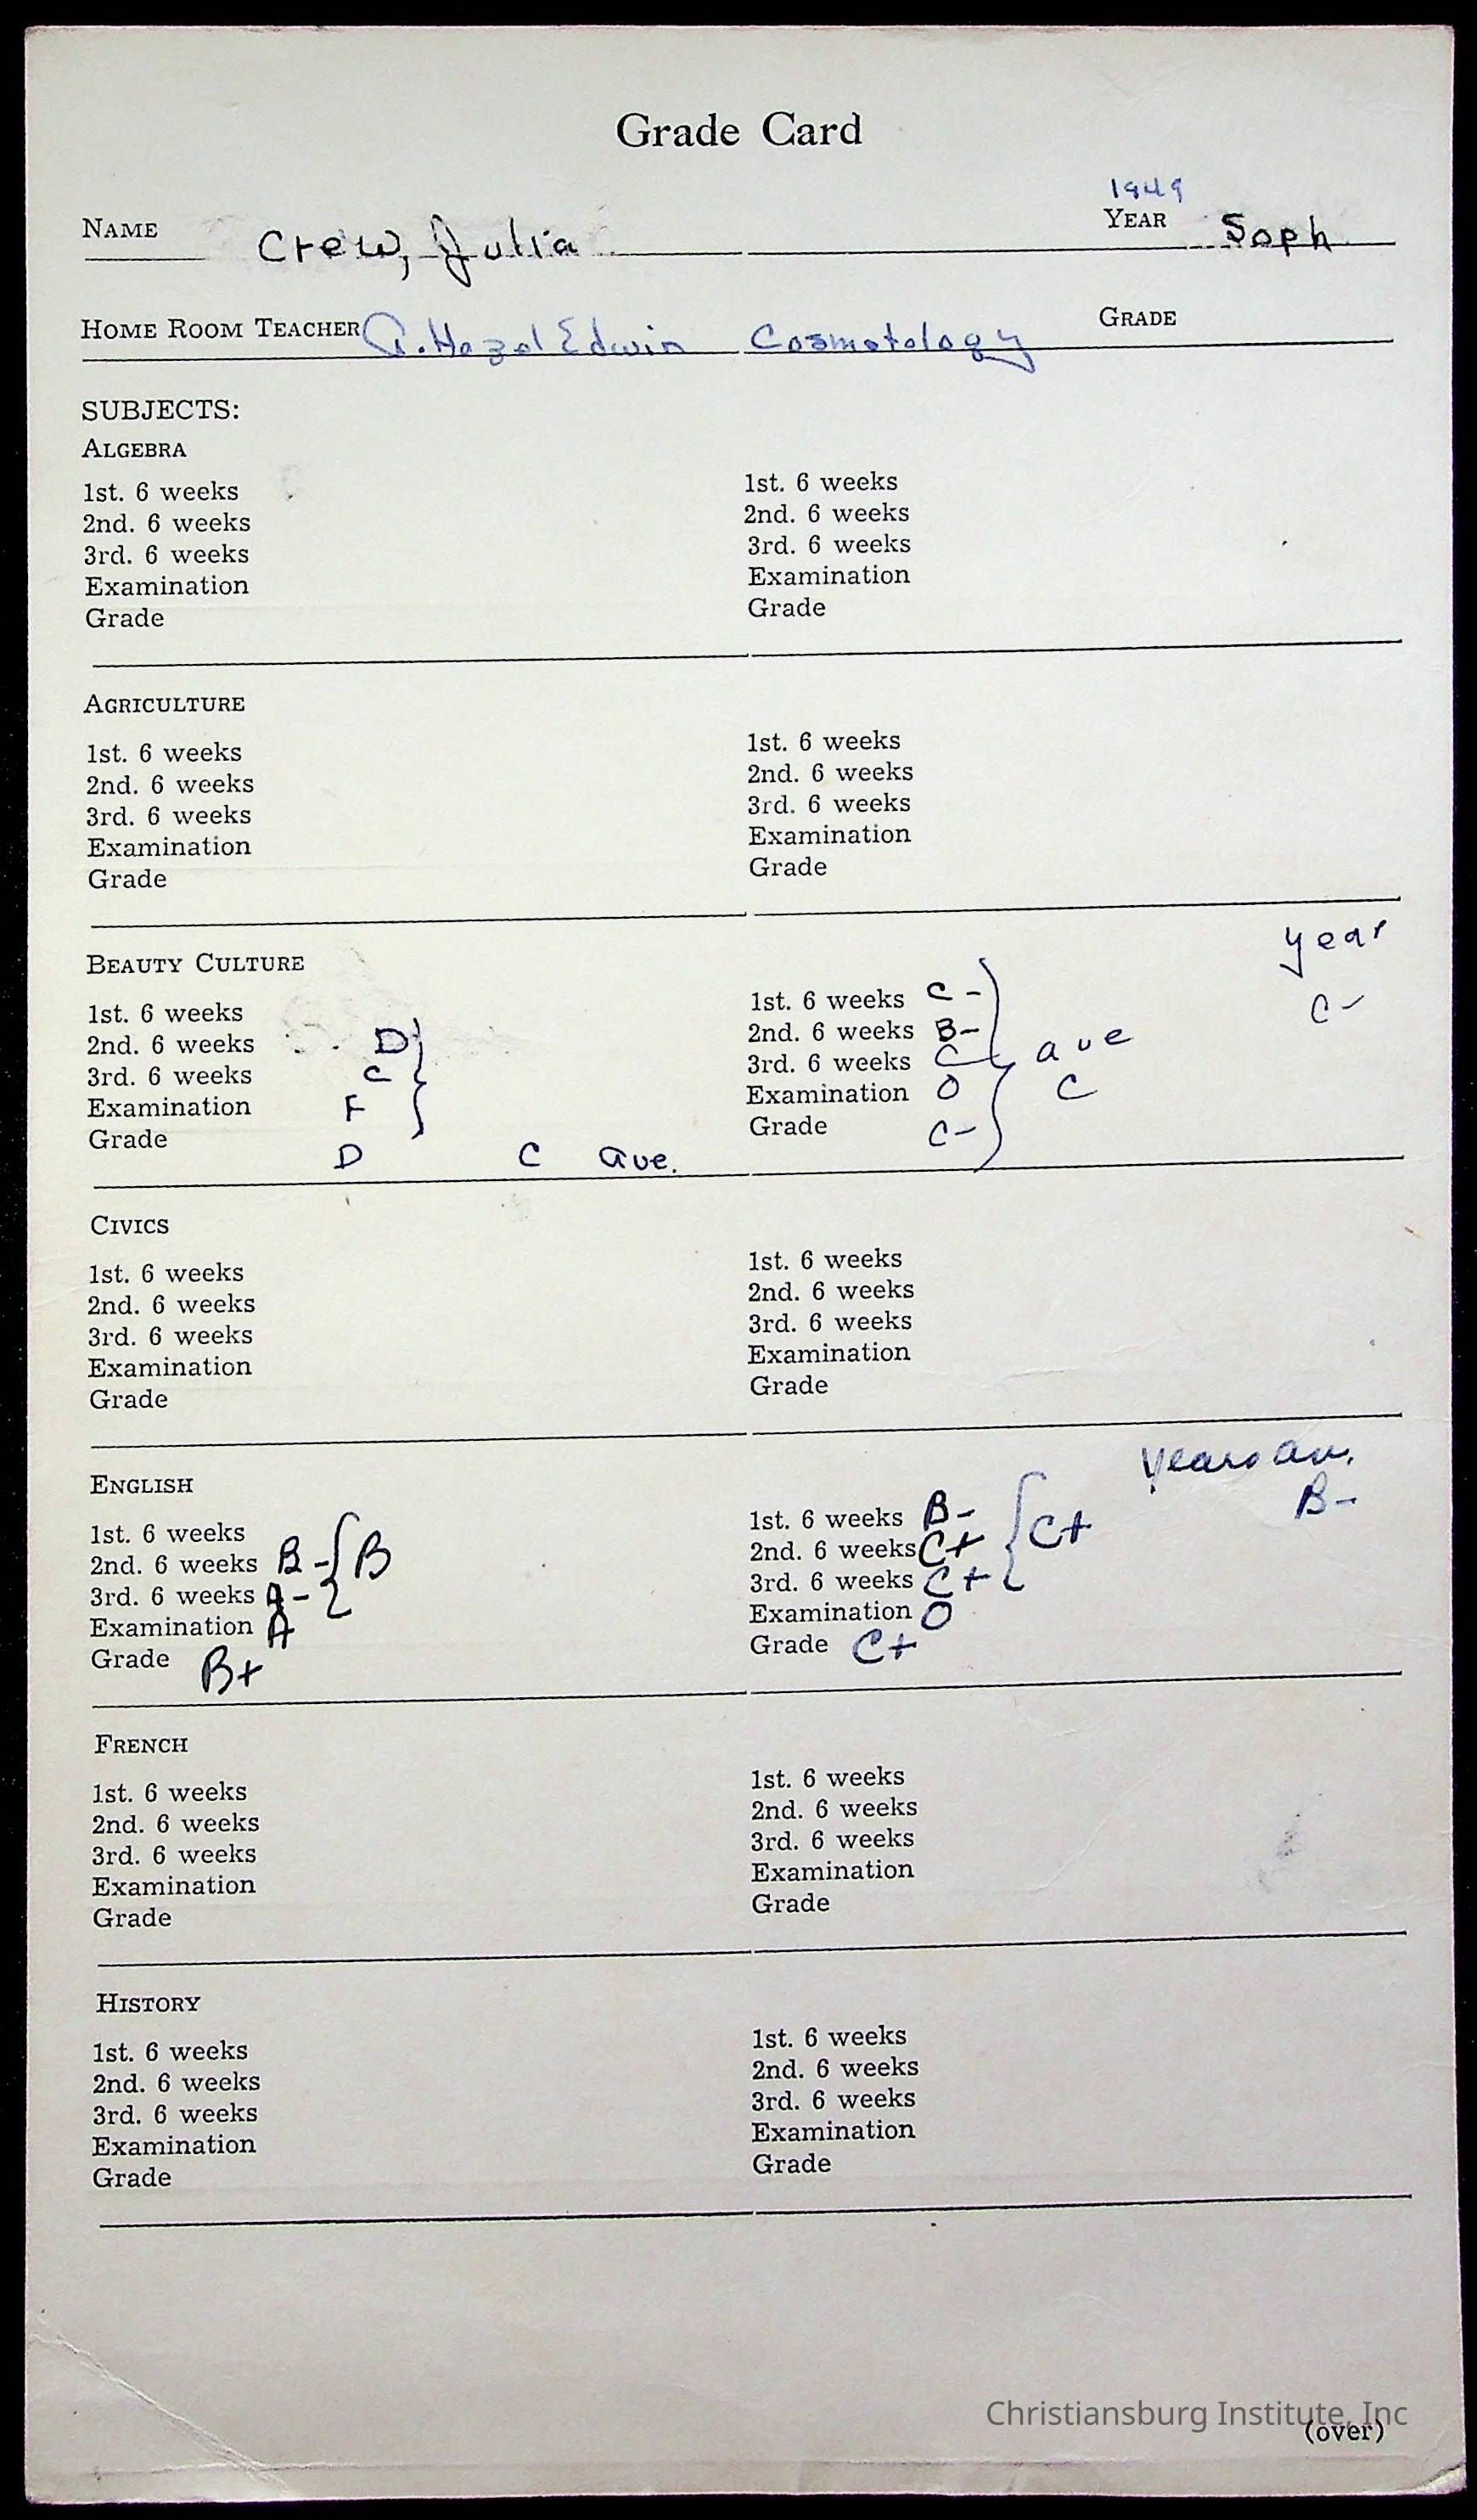 Grade Card
1949
NAME Crew, Julia YEAR Soph
HOME ROOM TEACHER A. Hazel Edwin Cosmetology GRADE
SUBJECTS:
ALGEBRA
1st. 6 weeks 1st. 6 weeks
2nd. 6 weeks 2nd. 6 weeks
3rd. 6 weeks 3rd. 6 weeks
Examination Examination
Grade Grade
AGRICULTURE
1st. 6 weeks 1st. 6 weeks
2nd. 6 weeks 2nd. 6 weeks
3rd. 6 weeks 3rd. 6 weeks
Examination Examination
Grade Grade
BEAUTY CULTURE year
1st. 6 weeks 1st. 6 weeks C- C-
2nd. 6 weeks D 2nd. 6 weeks B-
3rd. 6 weeks C 3rd. 6 weeks C ave
Examination F Examination O C
Grade D C ave. Grade C-
CIVICS
1st. 6 weeks 1st. 6 weeks
2nd. 6 weeks 2nd. 6 weeks
3rd. 6 weeks 3rd. 6 weeks
Examination Examination
Grade Grade
ENGLISH Years av.
1st. 6 weeks 1st. 6 weeks B- B-
2nd. 6 weeks B- B 2nd. 6 weeks C+ C+
3rd. 6 weeks A- 3rd. 6 weeks C+
Examination A Examination O
Grade B+ Grade C+
FRENCH
1st. 6 weeks 1st. 6 weeks
2nd. 6 weeks 2nd. 6 weeks
3rd. 6 weeks 3rd. 6 weeks
Examination Examination
Grade Grade
HISTORY
1st. 6 weeks 1st. 6 weeks
2nd. 6 weeks 2nd. 6 weeks
3rd. 6 weeks 3rd. 6 weeks
Examination Examination
Grade Grade
Christiansburg Institute, Inc
(over)